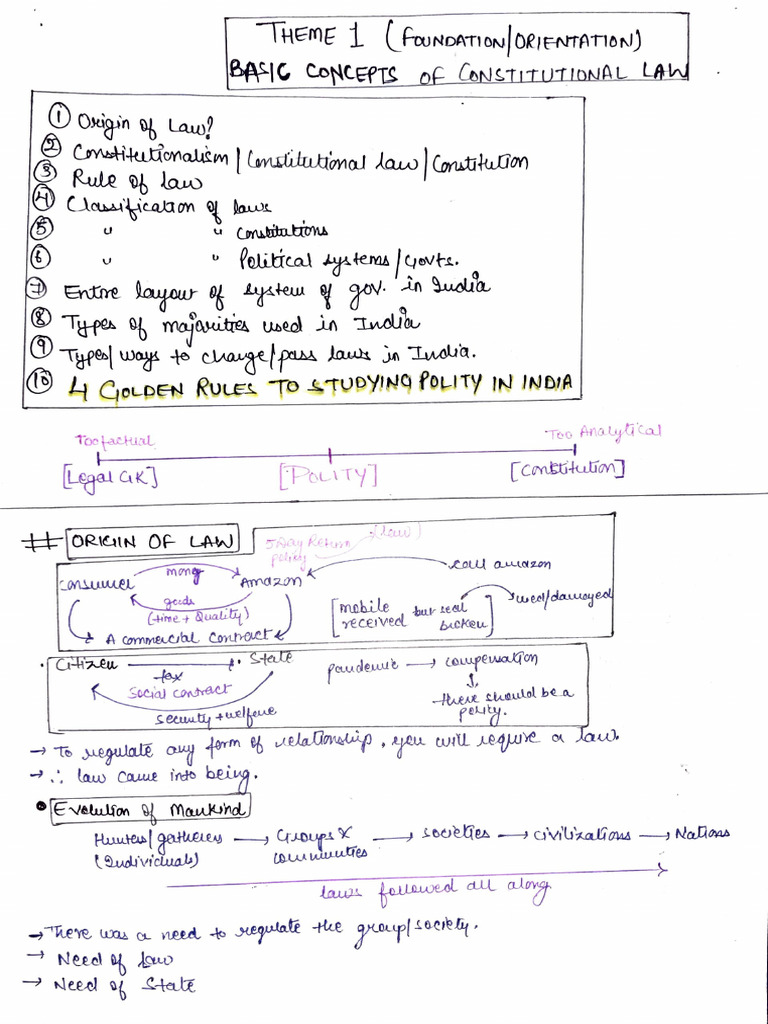 THEME 1 (FOUNDATION/ORIENTATION)
BASIC CONCEPTS OF CONSTITUTIONAL LAW
① Origin of Law?
② Constitutionalism/Constitutional law/Constitution
③ Rule of Law
④ Classification of laws
⑤ " " Constitutions
⑥ " " Political systems/Govts.
⑦ Entire layout of system of gov. in India
⑧ Types of majorities used in India
⑨ Types/ways to change/pass laws in India.
⑩ 4 GOLDEN RULES TO STUDYING POLITY IN INDIA
Too factual
Too Analytical
[Legal GK] [POLITY] [Constitution]
## ORIGIN OF LAW
5 Day Return policy
(law)
Consumer money Amazon
goods
(time + Quality)
A commercial contract
call amazon
[mobile received but seal broken]
used/damaged
• Citizen → • State
tax
Social contract
security + welfare
pandemic → compensation
↓
there should be a
policy.
→ To regulate any form of relationship, you will require a law.
→ ∴ law came into being.
• Evolution of Mankind
Hunters/gatherers → Groups & → societies → civilizations → Nations
(Individuals) communities
laws followed all along
→ There was a need to regulate the group/society.
→ Need of Law
→ Need of State